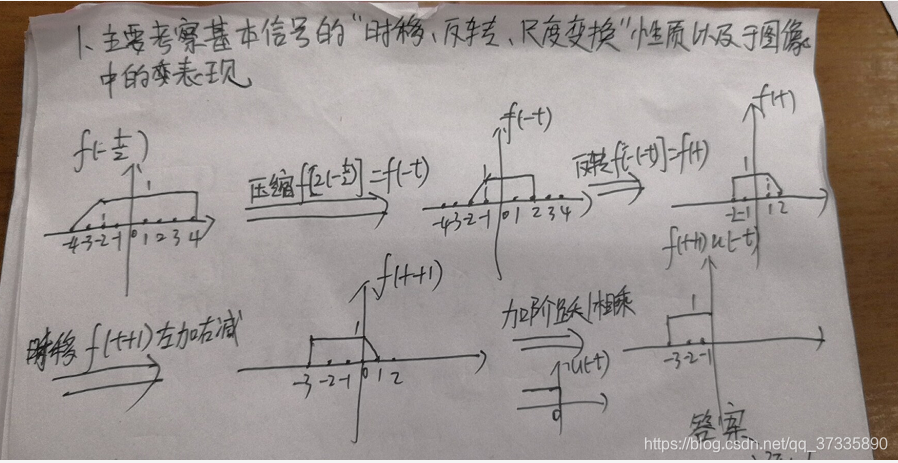 1、主要考察基本信号的“时移、反转、尺度变换”性质以及于图像
中的变表现
f(-t/2)
1
-4 -3 -2 -1 0 1 2 3 4
压缩 f[2(-t/2)] = f(-t)
f(-t)
1
-4 -3 -2 -1 0 1 2 3 4
反转 f[-(-t)] = f(t)
f(t)
1
-2 -1 1 2
时移 f(t+1) 左加右减
f(t+1)
1
-3 -2 -1 0 1 2
加阶跃/相乘
u(-t)
0
f(t+1)u(-t)
1
-3 -2 -1
答案
https://blog.csdn.net/qq_37335890